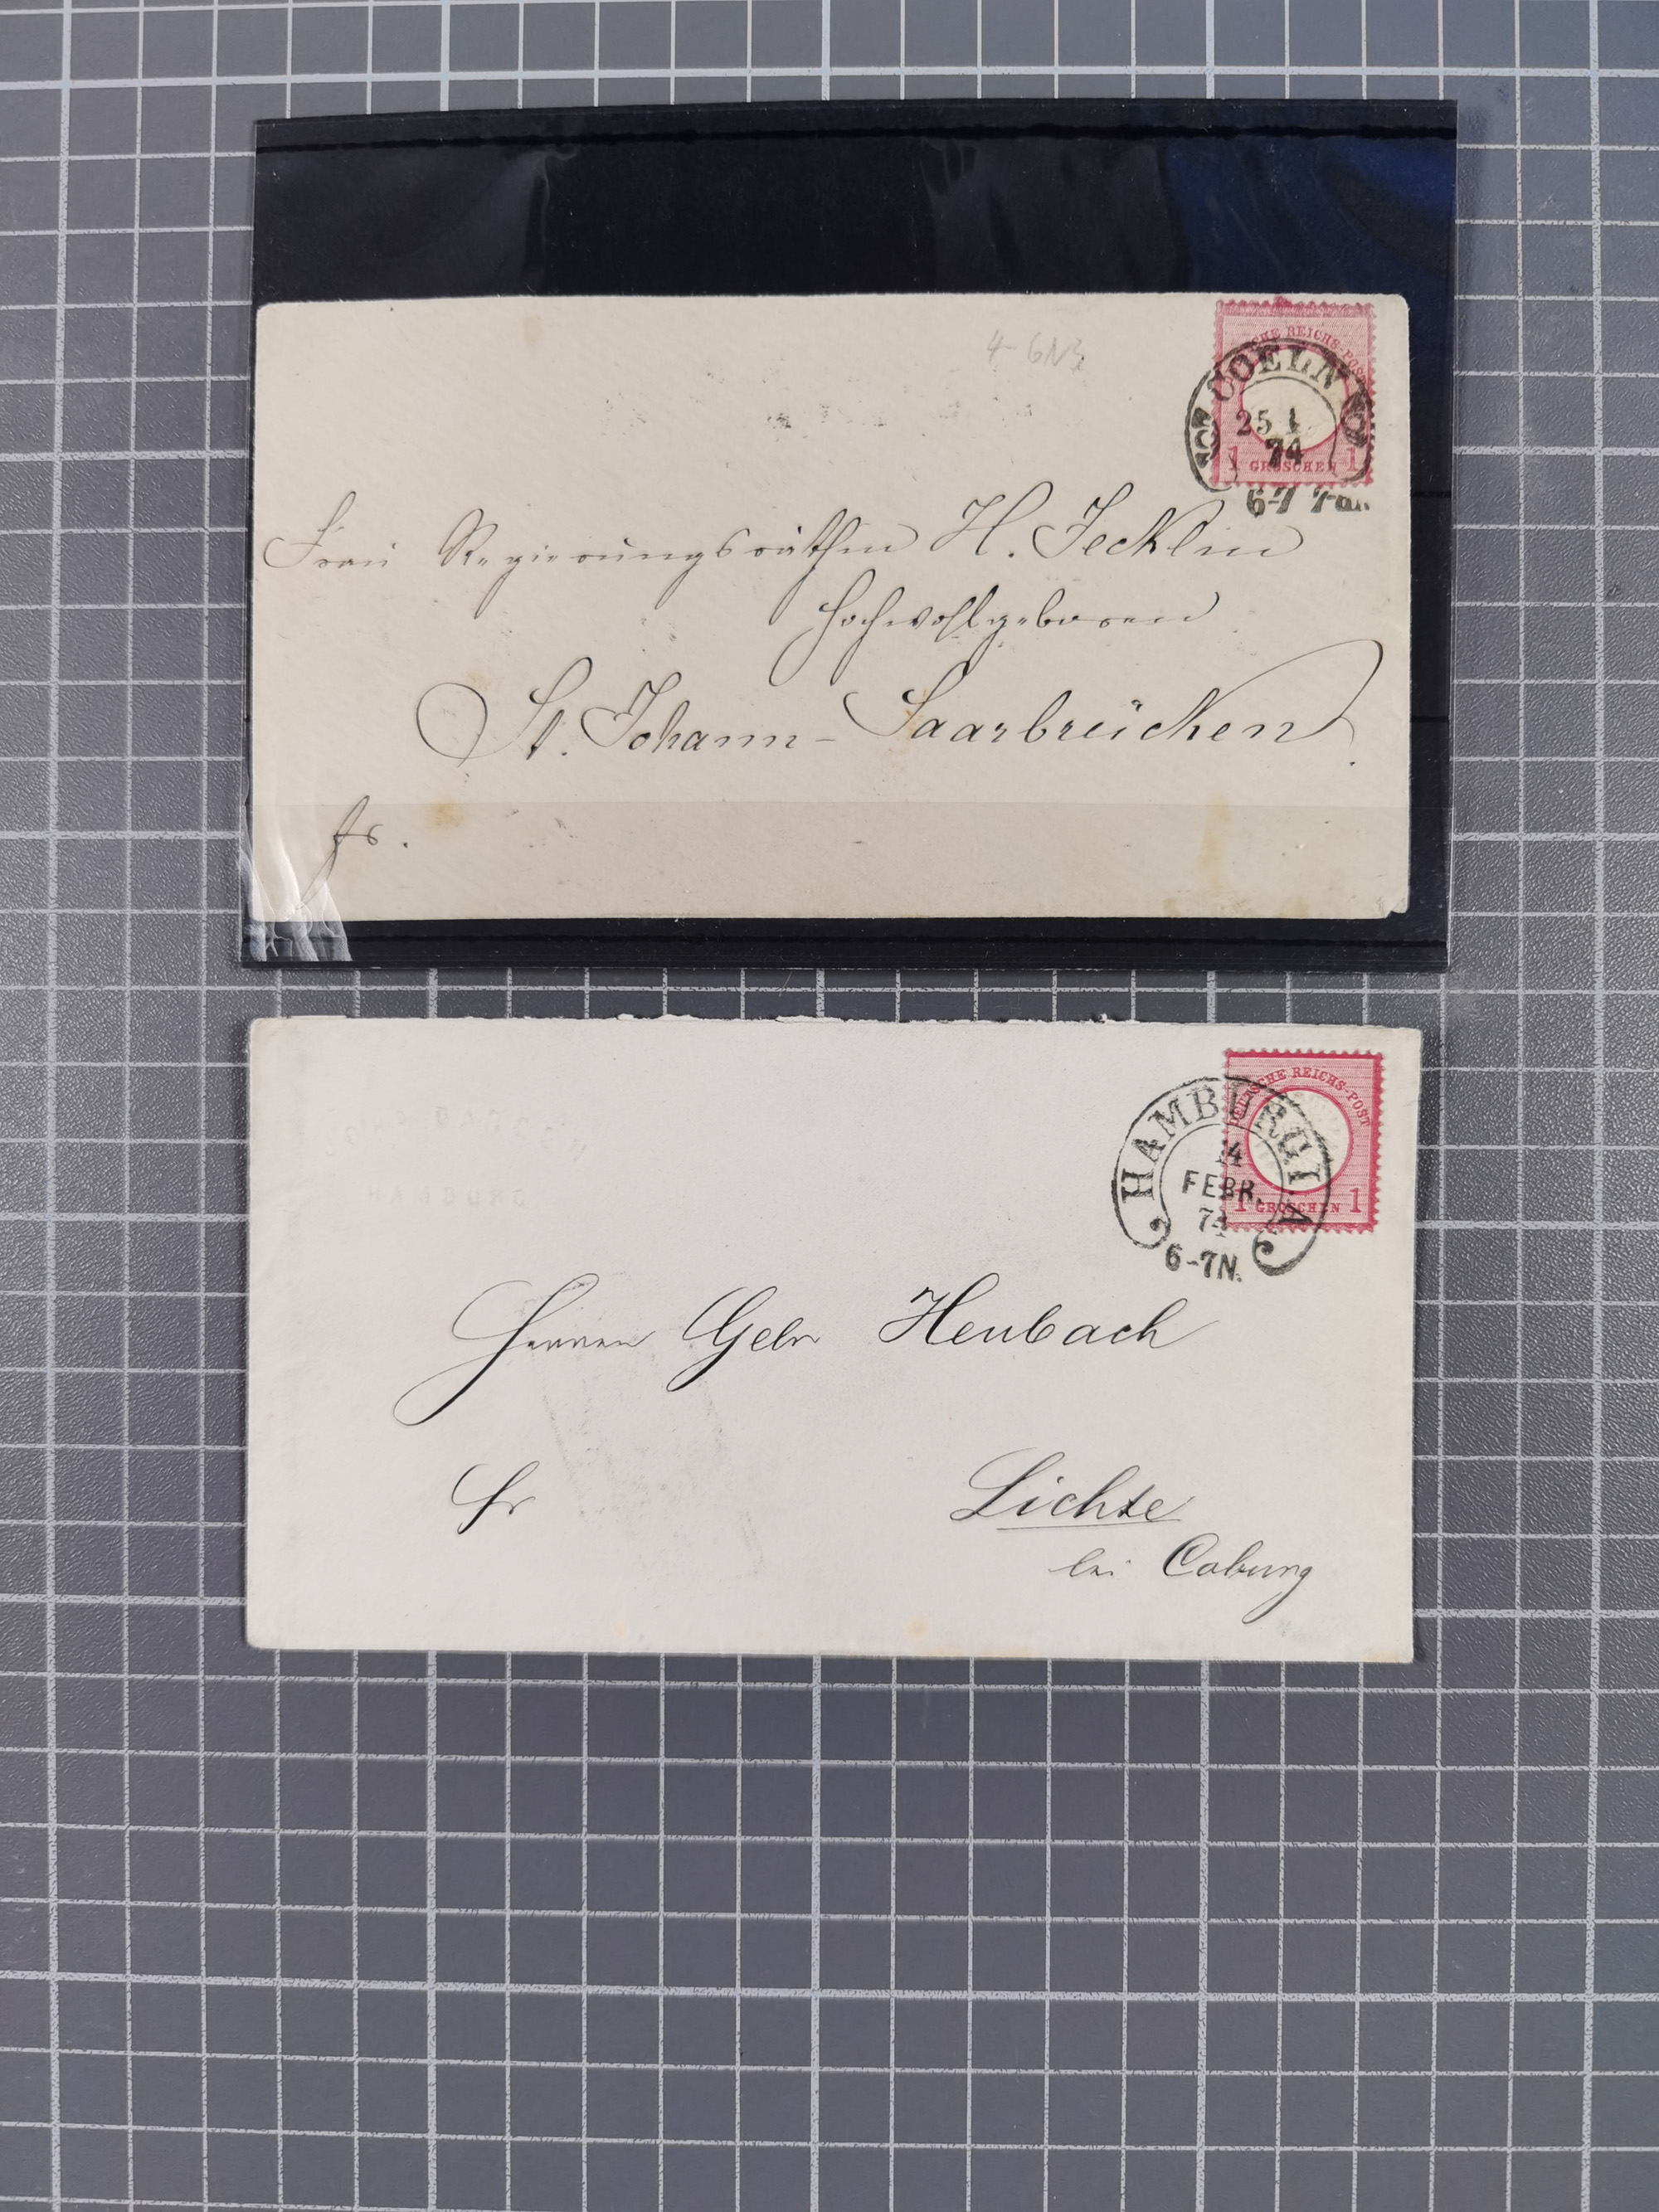 4-6N3
HE REICHS-POST
COELN
25 1
74
1 GROSCHEN 1
6-7
Frau Regierungsräthin H. Jecklin
Hochwohlgeboren
St. Johann-Saarbrücken.
fr.
SCHE REICHS-POST
HAMBURG I. A.
14
FEBR.
74
1 GROSCHEN 1
6-7N.
Herren Gebr Heubach
fr
Lichte
bei Coburg